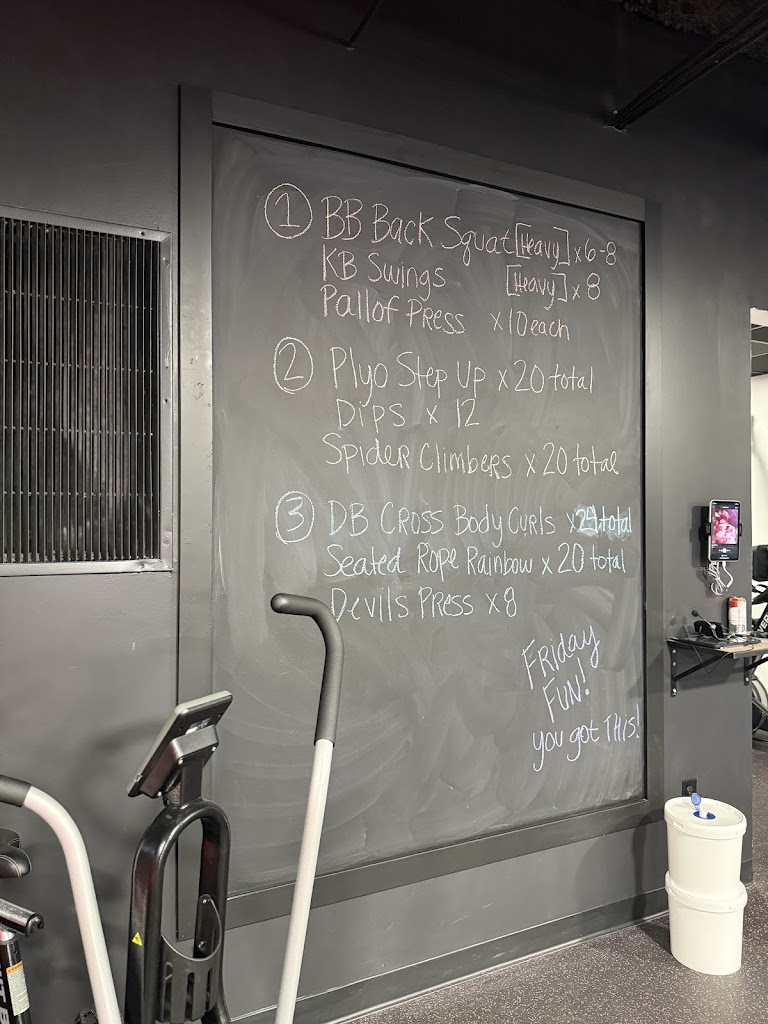 ① BB Back Squat [Heavy] x 6-8
KB Swings [Heavy] x 8
Pallof Press x 10 each
② Plyo Step Up x 20 total
Dips x 12
Spider Climbers x 20 total
③ DB Cross Body Curls x 24 total
Seated Rope Rainbow x 20 total
Devils Press x 8
Friday
Fun!
you got This!